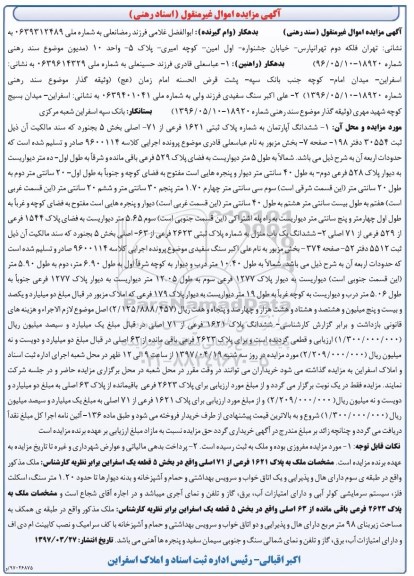 آگهی مزایده اموال غیرمنقول (اسناد رهنی)
آگهی مزایده اموال غیرمنقول (سند رهنی) بدهکار (وام گیرنده): ابوالفضل غلامی فرزند رمضانعلی به شماره ملی ۰۶۳۹۳۱۲۴۸۹ به
نشانی: تهران فلکه دوم تهرانپارس- خیابان جشنواره- اول امین- کوچه امیری- پلاک ۵- واحد ۱۰ (مدیون موضوع سند رهنی
شماره ۱۸۹۲۰-۹۶/۰۵/۱۰) بدهکار (راهنین): ۱- عباسعلی قادری فرزند حسینعلی به شماره ملی ۰۶۳۹۶۱۴۳۲۹ به نشانی:
اسفراین- میدان امام- کوچه جنب بانک سپه- پشت قرض الحسنه امام زمان (عج) (وثیقه گذار موضوع سند رهنی
شماره ۱۸۹۲۰-۱۳۹۶/۰۵/۱۰) ۲- علی اکبر سنگ سفیدی فرزند ولی به شماره ملی ۰۶۳۹۴۰۱۰۴۱ به نشانی: اسفراین- میدان بسیج
کوچه شهید مهری (وثیقه گذار موضوع سند رهنی شماره ۱۸۹۲۰-۱۳۹۶/۰۵/۱۰) بستانکار: بانک سپه اسفراین شعبه مرکزی
مورد مزایده و محل آن: ۱- ششدانگ آپارتمان به شماره پلاک ثبتی ۱۶۲۱ فرعی از ۷۱- اصلی بخش ۵ بجنورد که سند مالکیت آن ذیل
ثبت ۳۰۵۵۴ دفتر ۱۹۸- صفحه ۷- بخش مزبور به نام عباسعلی قادری موضوع پرونده اجرایی کلاسه ۹۶۰۰۱۱۴ صادر و تسلیم شده است که
حدودات اربعه آن به شرح ذیل می باشد. شمالاً به طول ۵ متر دیواریست به فضای پلاک ۵۲۹ فرعی باقی مانده و شرقاً به طول اول- ده متر دیواریست
به دیوار پلاک ۵۲۸ فرعی دوم- به طول ۴۰ سانتی متر دیوار و پنجره هایی است مفتوح به فضای کوچه و جنوباً به طول اول- ۲۰ سانتی متر دوم به
طول ۲۰ سانتی متر (این قسمت شرقی است) سوم سی سانتی متر چهارم ۱.۷۰ متر پنجم ۳۰ سانتی متر و ششم ۲۰ سانتی متر (این قسمت غربی
است) هفتم به طول بیست سانتی متر هشتم به طول ۴۰ سانتی متر (این قسمت غربی است) دیوار و پنجره هایی است مفتوح به فضای کوچه و غرباً به
طول اول چهارمتر و پنج سانتی متر دیواریست به راه پله اشتراکی (این قسمت جنوبی است) سوم ۵.۶۵ متر دیواریست به فضای پلاک ۱۵۴۴ فرعی
از ۵۲۹ فرعی از ۷۱ اصلی ۲- ششدانگ یک باب منزل به شماره پلاک ثبتی ۲۶۲۳ فرعی از ۶۳- اصلی بخش ۵ بجنورد که سند مالکیت آن ذیل
ثبت ۵۵۱۲ دفتر ۵۲- صفحه ۳۷۴- بخش مزبور به نام علی اکبر سنگ سفیدی موضوع پرونده اجرایی کلاسه ۹۶۰۰۱۱۴ صادر و تسلیم شده است
که حدودات اربعه آن به شرح ذیل می باشد: شمالاً به طول ۱۰.۴۰ متر درب و دیوار به کوچه شرقاً اول به طول ۶.۹۰ متر، دوم به طول ۵.۹۰ متر
(این قسمت جنوبی است) دیواریست به دیوار پلاک ۱۲۷۷ فرعی سوم به طول ۱۲.۰۵ متر دیواریست به دیوار پلاک ۱۲۷۷ فرعی جنوباً به
طول ۵.۰۶ متر درب و دیواریست به کوچه غرباً به طول ۱۹ متر دیواریست به دیوار پلاک ۱۷۹ فرعی که املاک مزبور در قبال مبلغ دو میلیارد و یکصد
و بیست و پنج میلیون و هشتصد و هشتاد و هشت هزار و چهار صد و پنجاه و هفت ریال (۲/۱۲۵/۸۸۸/۴۵۷) اصل موضوع لازم الاجراء و هزینه های
قانونی بازداشت و برابر گزارش کارشناسی- ششدانگ پلاک ۱۶۲۱ فرعی از ۷۱ اصلی در قبال مبلغ یک میلیارد و سیصد میلیون ریال
(۱/۳۰۰/۰۰۰/۰۰۰) ارزیابی و قطعی گردیده است و برای پلاک ۲۶۲۳ فرعی باقی مانده از ۶۳ اصلی در قبال مبلغ دو میلیارد و دویست و نه
میلیون ریال (۲/۲۰۹/۰۰۰/۰۰۰) مورد مزایده در روز سه شنبه ۱۳۹۷/۰۴/۱۹ از ساعت ۹ الی ۱۲ ظهر در محل شعبه اجرای اداره ثبت اسناد
و املاک اسفراین به مزایده گذاشته می شود خریداران می توانند در وقت مقرر در محل شعبه در محل برگزاری مزایده حاضر و در جلسه شرکت
نمایند. مزایده فقط در یک نوبت برگزار می گردد و از مبلغ مورد ارزیابی برای پلاک ۲۶۲۳ فرعی باقیمانده از پلاک ۶۳ اصلی به مبلغ دو میلیارد و
دویست و نه میلیون ریال (۲/۲۰۹/۰۰۰/۰۰۰) و از مبلغ مورد ارزیابی برای پلاک ۱۶۲۱ فرعی از ۷۱ اصلی به مبلغ یک میلیارد و سیصد میلیون
ریال (۱/۳۰۰/۰۰۰/۰۰۰) شروع و به بالاترین قیمت پیشنهادی از طرف خریدار فروخته می شود و طبق ماده ۱۳۶- آئین نامه اجرا کل مبلغ نقداً
دریافت می گردد و چنانچه زائد بر مبلغ مندرج در آگهی خریداری گردد حق مزایده نسبت به مازاد مبلغ ارزیابی بر عهده برنده مزایده است
نکات قابل توجه: ۱- مورد مزایده مفروزی بوده و ملک به ثبت رسیده است. ۲- پرداخت بدهی مالیاتی و عوارض شهرداری و غیره تا تاریخ مزایده به
عهده برنده مزایده است. مشخصات ملک به پلاک ۱۶۲۱ فرعی از ۷۱ اصلی واقع در بخش ۵ قطعه یک اسفراین برابر نظریه کارشناس: ملک مذکور
واقع در طبقه ی سوم دارای هال و پذیرایی و یک اتاق خواب و سرویس بهداشتی و حمام و آشپزخانه و بدنه دیوارها حدود ۱.۲۰ متر سنگ، اسکلت
فلز، سیستم سرمایشی کولر آبی و دارای امتیازات آب، برق، گاز و تلفن و نمای آجری میباشد و در اجاره آقای شجاع است و مشخصات ملک به
پلاک ۲۶۲۳ فرعی باقی مانده از ۶۳ اصلی واقع در بخش ۵ قطعه یک اسفراین برابر نظریه کارشناس: ملک مذکور واقع در طبقه ی همکف به
مساحت زیربنای ۹۸ متر مربع دارای هال و پذیرایی و دو اتاق خواب و سرویس بهداشتی و حمام و آشپزخانه با کف سرامیک و نصب کابینت ام دی اف
و دارای امتیازات آب، برق، گاز و تلفن و نمای شمالی سنگ و جنوبی سیمان سفید و پنجره ها آهنی می باشد. تاریخ انتشار: ۱۳۹۷/۰۳/۲۷
اکبر اقبالی- رئیس اداره ثبت اسناد و املاک اسفراین